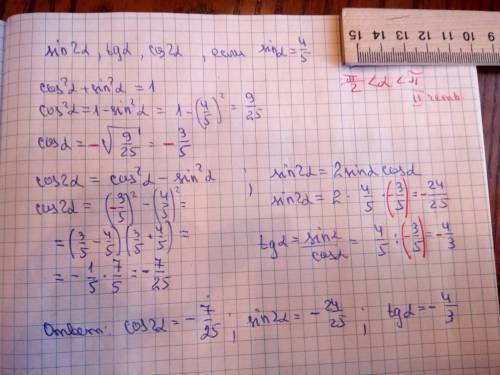 sin2α, tgα, cos2α, если sinα = 4/5
π/2 < α < π
II четв.
cos²α + sin²α = 1
cos²α = 1 - sin²α = 1 - (4/5)² = 9/25
cosα = -√(9/25) = -3/5
cos2α = cos²α - sin²α ;
cos2α = (-3/5)² - (4/5)² =
= (3/5 - 4/5)(3/5 + 4/5) =
= -1/5 · 7/5 = -7/25
sin2α = 2sinα cosα
sin2α = 2 · 4/5 · (-3/5) = -24/25
tgα = sinα/cosα = 4/5 : (-3/5) = -4/3
Ответ: cos2α = -7/25 ; sin2α = -24/25 ; tgα = -4/3
15 14 13 12